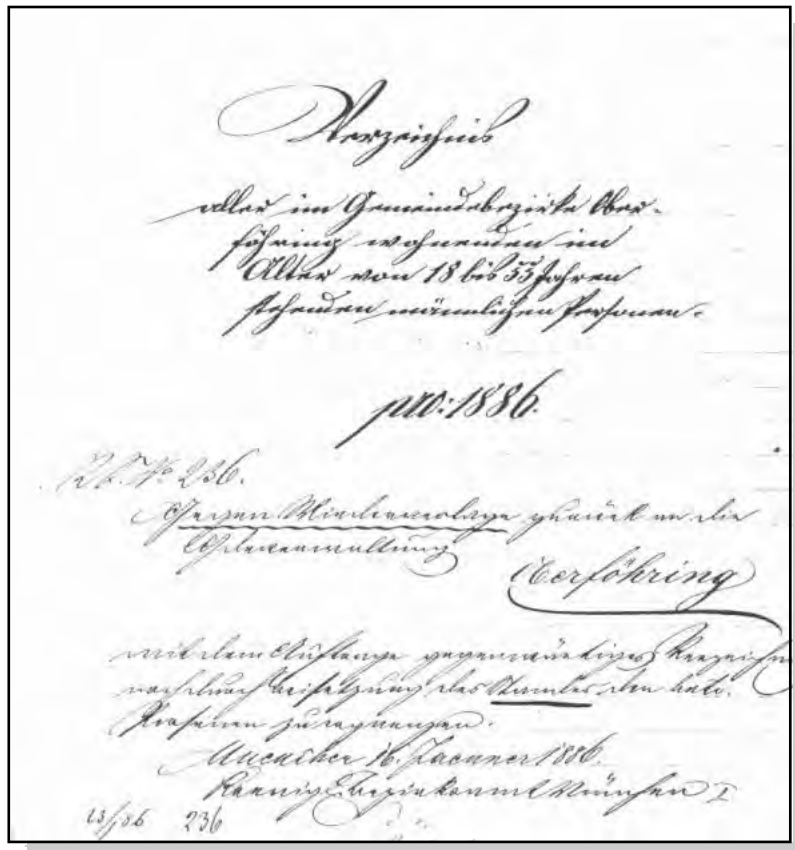 Verzeichnis
aller im Gemeindebezirke Ober-
föhring wohnenden im
Alter von 18 bis 55 Jahren
stehenden männlichen Personen.
pro: 1886.
No 236.
Gegen Wiedervorlage zurück an die
Ortsverwaltung
Oberföhring
mit dem Auftrage gegenwärtiges Verzeichn
noch durch Beisetzung des Standes den betr.
Personen zu ergänzen.
München 16. Jaenner 1886.
Koenigl. Bezirksamt München I
236